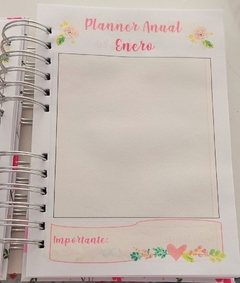 Planner Anual
Enero
Importante: